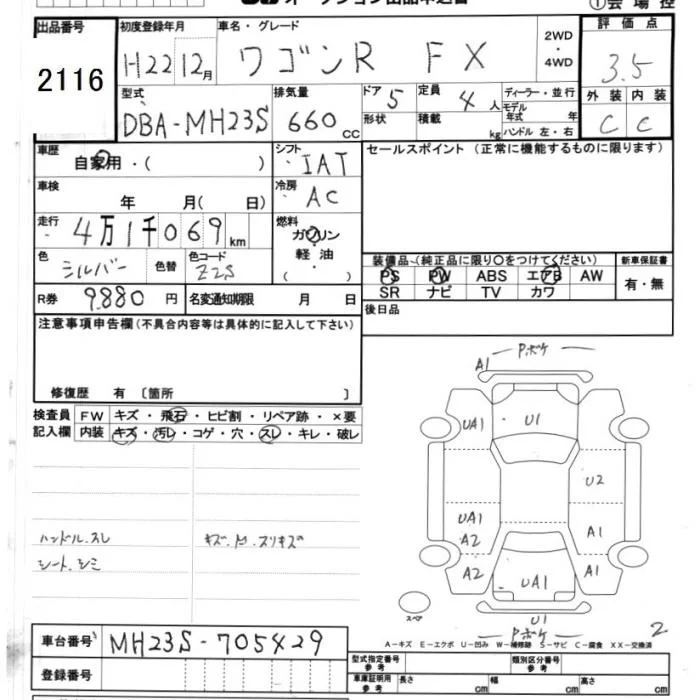 オークション出品申込書
①会場控
出品番号
2116
初度登録年月
H22 12月
車名・グレード
ワゴンR FX
2WD
・
4WD
評価点
3.5
型式
DBA-MH23S
排気量
660cc
ドア 5
形状
定員 4人
積載 kg
ディーラー・並行
モデル年式 年
ハンドル 左・右
外装 内装
C C
車歴
自家用・( )
シフト
IAT
セールスポイント (正常に機能するものに限ります)
車検
年 月( 日)
冷房
AC
走行
4万1千069km
燃料
ガソリン
軽油
・
( )
色
シルバー
色替
色コード
Z2S
装備品(純正品に限り〇をつけてください)
PS PW ABS エアB AW
SR ナビ TV カワ
新車保証書
有・無
R券 9880円
名変通知期限 月 日
後日品
注意事項申告欄(不具合内容等は具体的に記入して下さい)
修復歴 有〔箇所 〕
検査員記入欄
FW キズ・飛石・ヒビ割・リペア跡・×要
内装 キズ・汚レ・コゲ・穴・スレ・キレ・破レ
ハンドル.スレ
シート.シミ
キズ.凹.スリキズ
P.ボケ
A1
UA1 U1
U2
UA1
A2 A1
A2 UA1 A1
スペア
U1
P.ボケ
2
A-キズ E-エクボ U-凹み W-補修跡 S-サビ C-腐食 XX-交換済
車台番号
MH23S-705429
登録番号
型式指定番号参考
類別区分番号参考
車庫証明用参考
長さ cm
幅 cm
高さ cm